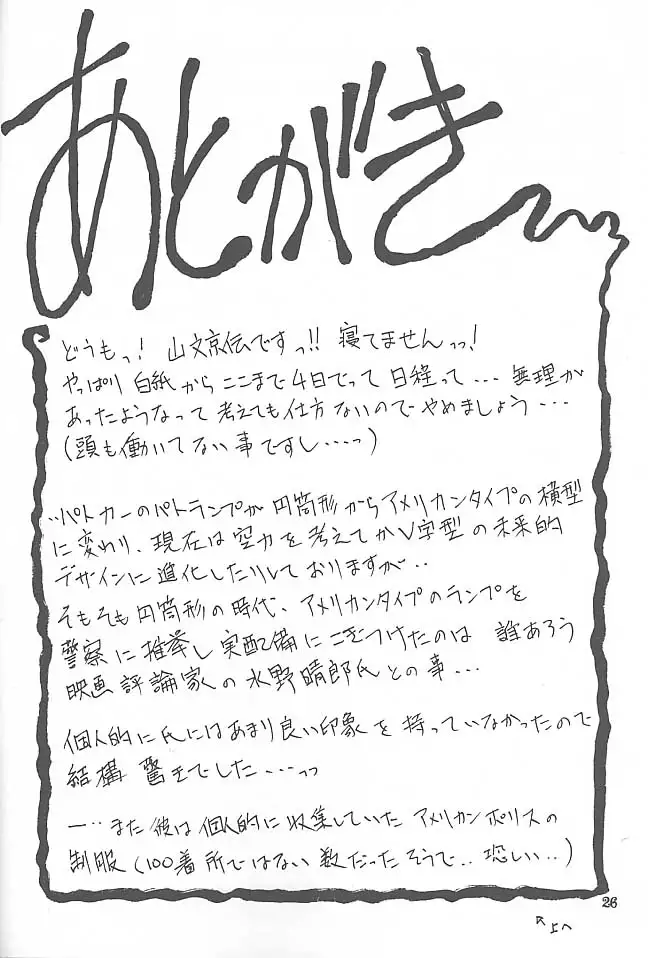 あとがき
どうもっ! 山文京伝ですっ!! 寝てませんっっ!
やっぱり 白紙から ここまで 4日でって 日程って... 無理が
あったようなって 考えても仕方ないので やめましょう...
(頭も働いてない事ですし....っ)
パトカーのパトランプが 円筒形からアメリカンタイプの横型
に変わり、現在は空力を考えてかV字型の未来的
デザインに進化したりしておりますが..
そもそも円筒形の時代、アメリカンタイプのランプを
警察に推挙し実配備にこぎつけたのは 誰あろう
映画評論家の水野晴郎氏との事...
個人的に氏にはあまり良い印象を持っていなかったので
結構 驚きでした....っっ
ー..また彼は個人的に収集していた アメリカンポリスの
制服(100着所ではない数だったそうで..恐しい..)
26
↖上へ